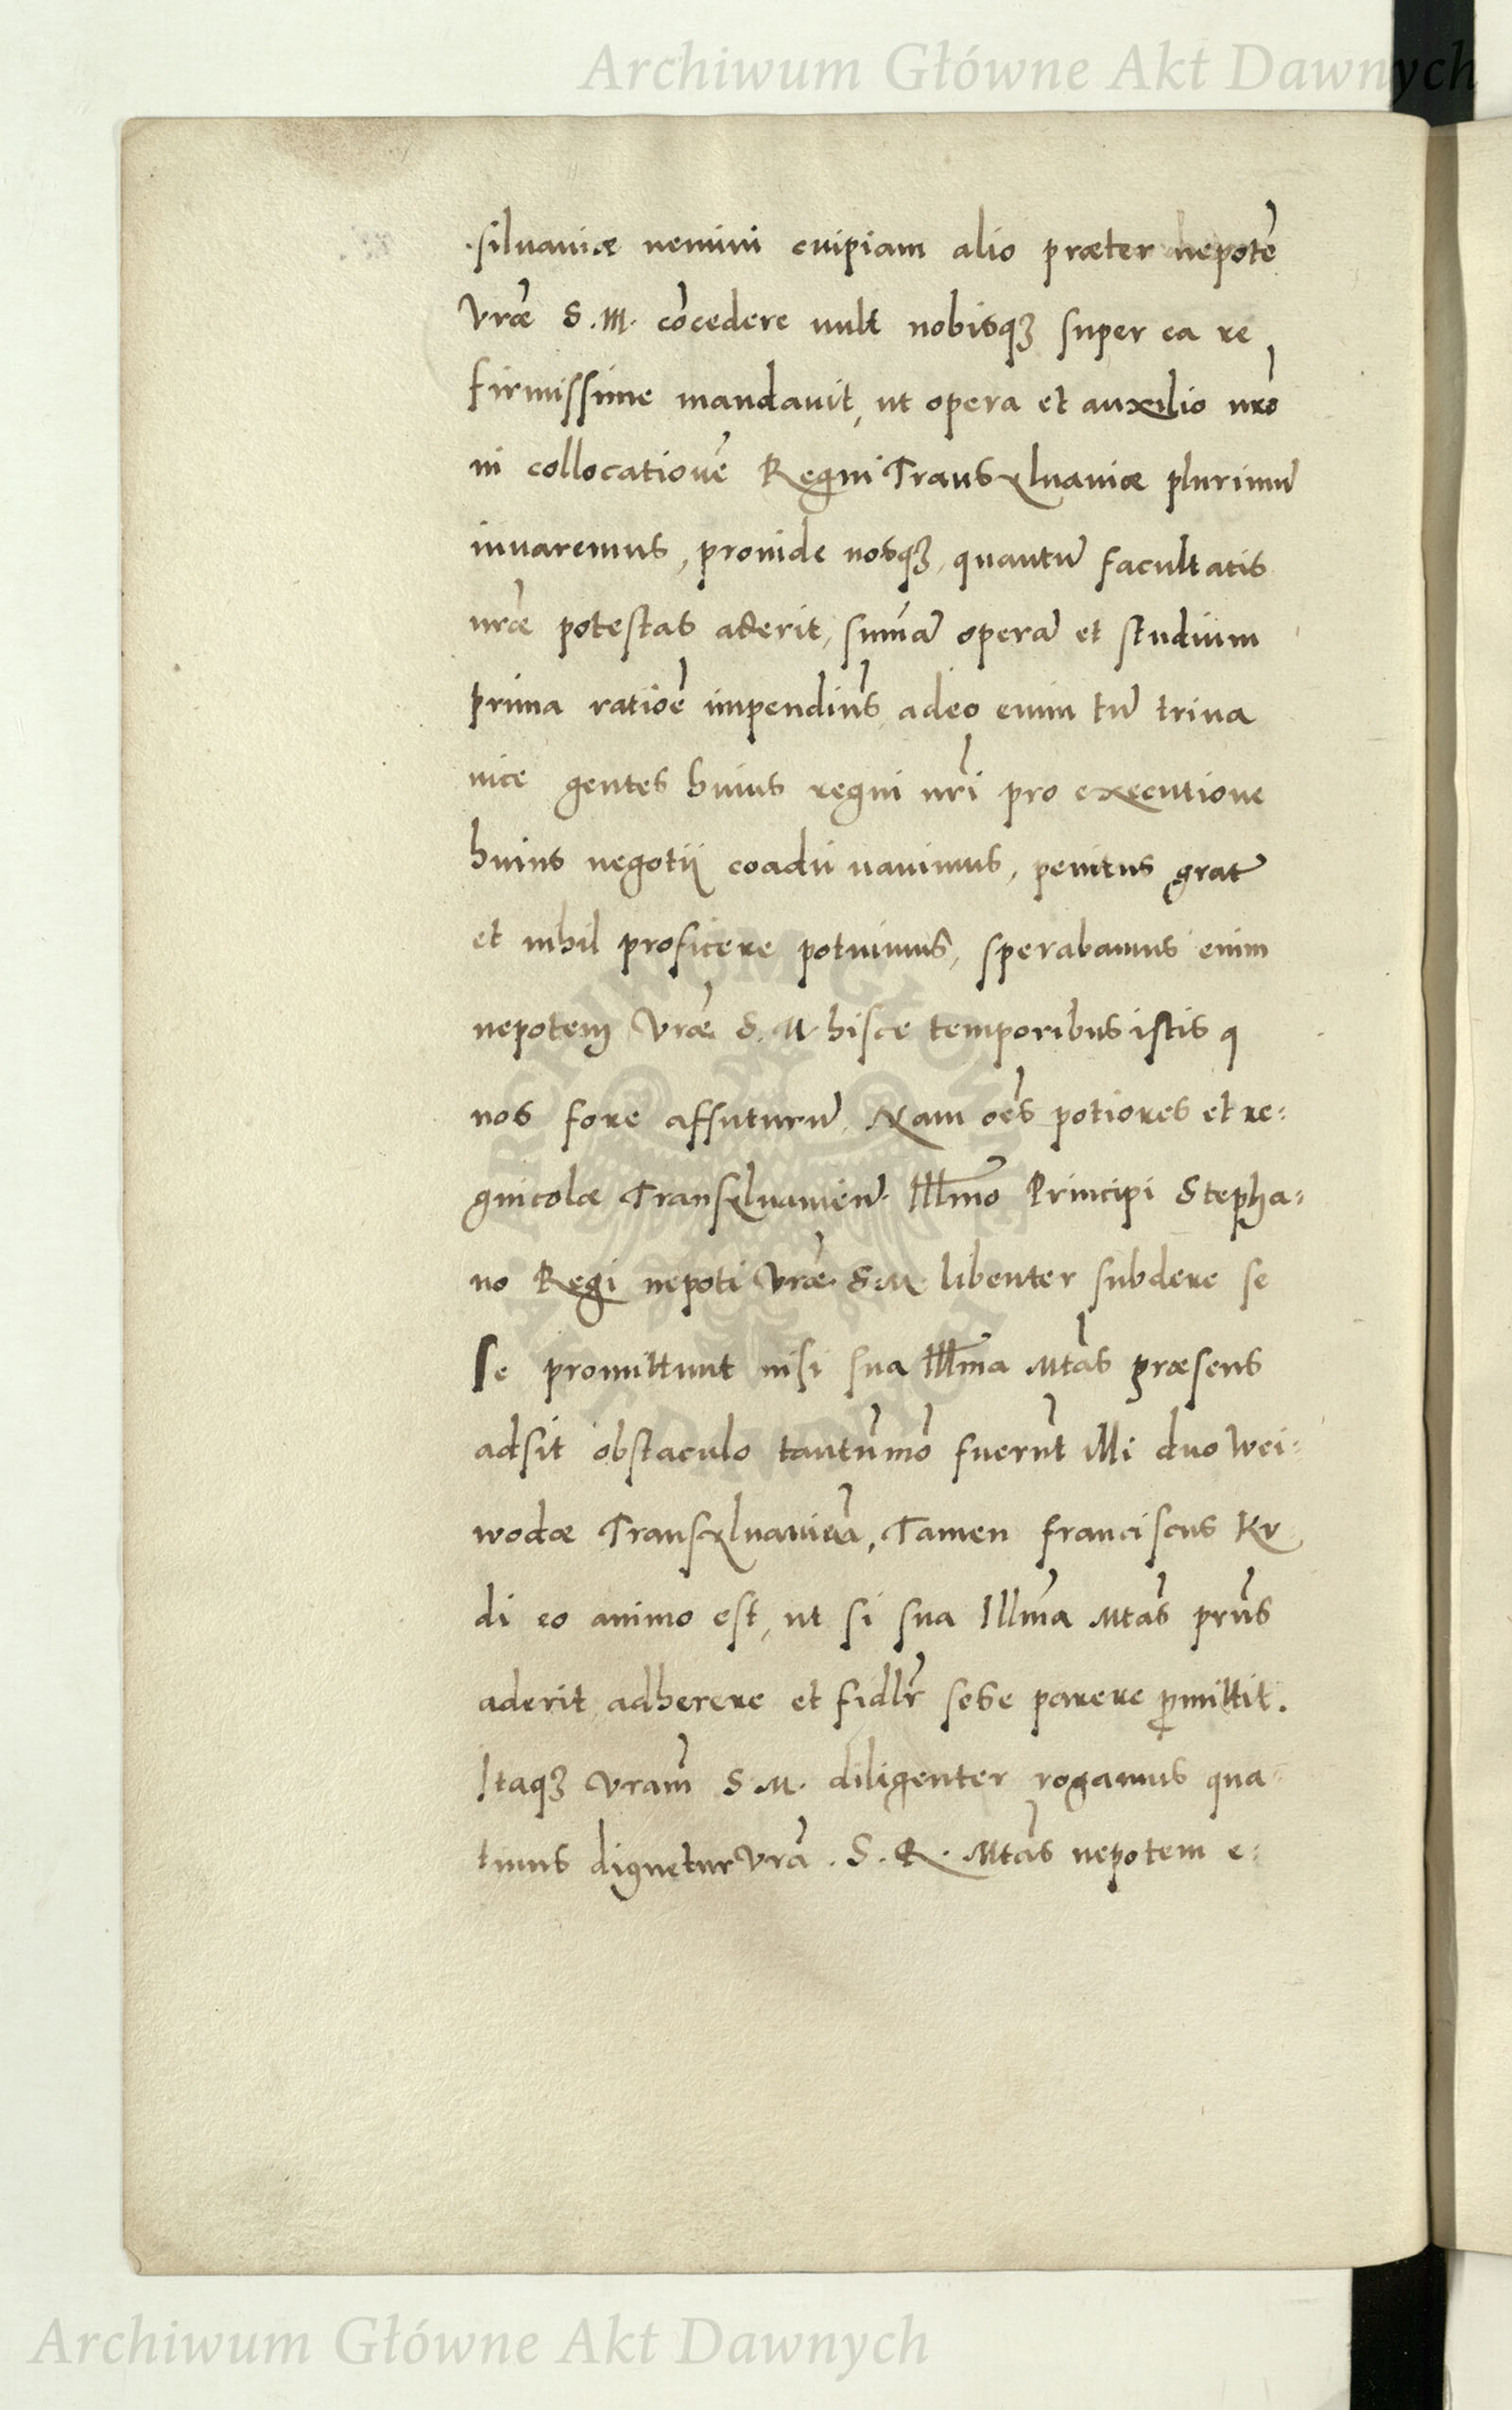 Archiwum Główne Akt Dawnych
siluaniæ nemini cuipiam alio præter nepotẽ
Vr̃æ S.M. cõcedere uult nobisqꝫ super ea re
firmissime mandauit, ut opera et auxilio nr̃o
in collocationẽ Regni Transyluaniæ plurimũ
iuuaremus, proinde nosqꝫ, quantũ facultatis
nr̃æ potestas aderit, sum̃ã operã et studium
prima ratioẽ impendim̃s, adeo enim tũ trina
uice gentes huius regni nr̃i pro executione
huius negotij coadiuuauimus, penitus grat̃
et nihil proficere potuimus, sperabamus enim
nepotem Vr̃æ S.M. hisce temporibus istis q
nos fore affuturũ, Nam oẽs potiores et re=
gnicolæ Transyluanieñ. Illm̃o Principi Stepha=
no Regi nepoti Vr̃æ. S.M. libenter subdere se
se promittunt nisi sua Illm̃a Mt̃as præsens
adsit obstaculo tantũmõ fuerũt illi duo Wei=
wodæ Transyluanieñ, Tamen franciscus Ke
di eo animo est, ut si sua Illm̃a Mt̃as prñs
aderit, adherere et fidlr̃ sese parere ꝓmittit.
Itaqꝫ Vram̃ S.M. diligenter rogamus qua
tinus dignetur Vr̃a. S.R. Mt̃as nepotem e=
Archiwum Główne Akt Dawnych